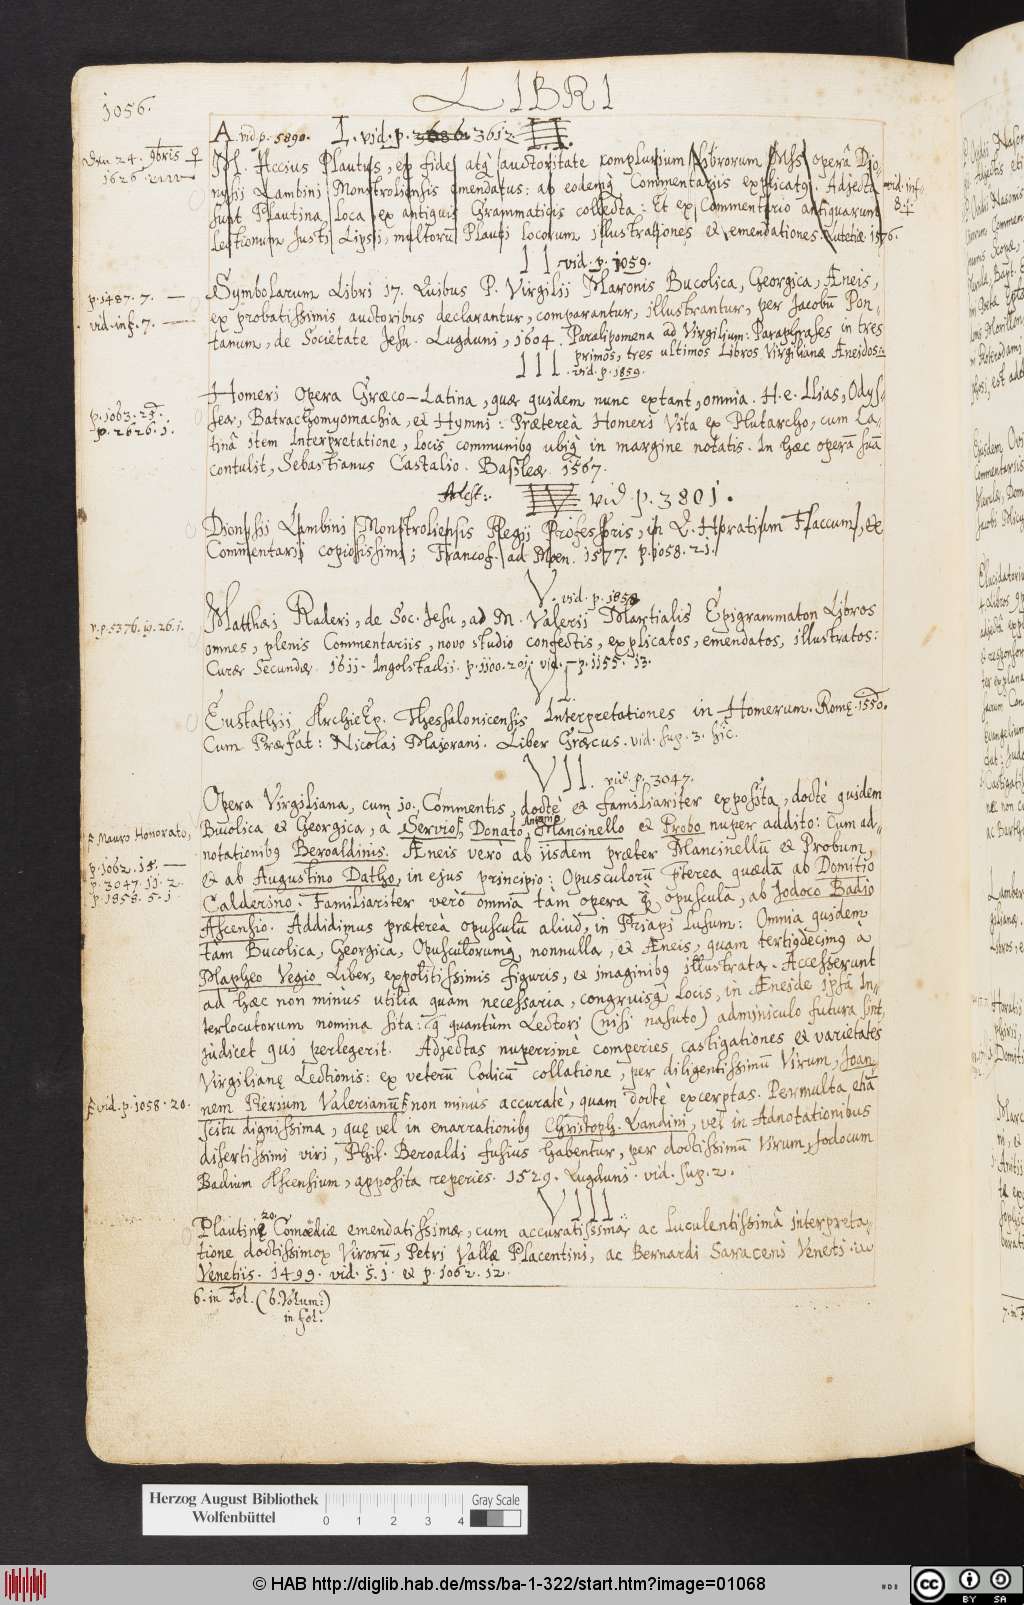 1056.
LIBRI
A vid. p. 5890. I. vid. p. 3686. 3612.
Den 24. 9bris ♀
1626.
M. Accius Plautus, ex fide, atq; auctoritate complurium Librorum Mss operâ Dio-
nysii Lambini Monstroliensis emendatus: ab eodemq; Commentariis explicatus. Adjecta
vid. inf.
8.
sunt Plautina loca ex antiquis Grammaticis collecta: Et ex Commentario antiquarum
Lectionum Justi Lipsii, multorū Plauti locorum illustrationes et emendationes. Lutetiæ 1576.
II vid. p. 1059.
p. 1487. 7. —
vid. inf. 7. —
Symbolarum Libri 17. Quibus P. Virgilii Maronis Bucolica, Georgica, Æneis,
ex probatissimis auctoribus declarantur, comparantur, illustrantur, per Jacobū Pon-
tanum, de Societate Jesu. Lugduni, 1604. Paralipomena ad Virgilium: Paraphrases in tres
primos, tres ultimos Libros Virgilianæ Æneidos:
III. vid. p. 1859.
p. 1063. 25.
p. 2626. 1.
Homeri Opera Græco-Latina, quæ quidem nunc extant, omnia. H. e. Ilias, Odys-
sea, Batrachomyomachia, et Hymni: Præterea Homeri Vita ex Plutarcho, cum La-
tinâ item Interpretatione, locis communibq ubiq; in margine notatis. In hæc operā suā
contulit, Sebastianus Castalio. Basileæ 1567.
IV vid. p. 3801.
Dionysii Lambini Monstroliensis Regii Professoris, in Q. Horatium Flaccum, et
Commentarii copiosissimi; Francof. ad Moen. 1577. p. 1058. 21.
V. vid. p. 1858
v. p. 5376. 19. 26. 1.
Matthæi Raderi, de Soc. Jesu, ad M. Valerii Martialis Epigrammaton Libros
omnes, plenis Commentariis, novo studio confectis, explicatos, emendatos, illustratos:
Curæ Secundæ. 1611. Ingolstadii. p. 1100. 20. vid. — p. 1155. 13.
VI
Eustathii ArchiEp. Thessalonicensis Interpretationes in Homerum. Romę. 1550.
Cum Præfat: Nicolai Majorani. Liber Græcus. vid. sup. 3. hîc.
VII. vid. p. 3047.
Opera Virgiliana, cum 10. Commentis, doctè et familiariter exposita, doctè quidem
F Mauro Honorato,
Bucolica et Georgica, à Servio F, Donato, Antonio Mancinello et Probo nuper addito: Cum ad-
notationibq Beroaldinis. Æneis verò ab iisdem præter Mancinellū et Probum,
p. 1062. 15. —
p. 3047. 11. 2.
p. 1858. 5. 1
et ab Augustino Datho, in ejus principio: Opusculorū præterea quædā ab Domitio
Calderino: Familiariter verò omnia tàm opera q̃ opuscula, ab Jodoco Badio
Ascensio. Addidimus præterea opusculū aliud, in Priapi lusum: Omnia quidem
tàm Bucolica, Georgica, Opusculorumq; nonnulla, et Æneis, quam tertiqdecimq à
Mapheo Vegio Liber, expolitissimis figuris, et imaginibq illustrata. Accesserunt
ad hæc non minùs utilia quàm necessaria, congruisq; locis, in Æneide ipsā In-
terlocutorum nomina sita: q̃ quantùm Lectori (nisi nasuto) adminiculo futura sint,
judicet qui perlegerit. Adjectas nuperrimè comperies castigationes et varietates
Virgilianę Lectionis: ex veterū Codicū collatione, per diligentissimū Virum, Joan-
F vid. p. 1058. 20.
nem Pierium Valerianū F non minus accuratè, quam doctè excerptas. Permulta etiā
scitu dignissima, quę vel in enarrationibq Christoph. Landini, vel in Adnotationibus
disertissimi viri, Phil. Beroaldi fusius habentur, per doctissimū Virum, Jodocum
Badium Ascensium, apposita reperies. 1529. Lugduni. vid. sup. 2.
VIII.
Plautinę 20. Comœdiæ emendatissimæ, cum accuratissimâ ac luculentissimâ interpreta-
tione doctissimoꝝ Virorū, Petri Vallæ Placentini, ac Bernardi Saraceni Veneti.
Venetiis. 1499. vid. s. 1. et p. 1062. 12.
6. in Fol. (6. Volum:)
in fol.
Herzog August Bibliothek
Wolfenbüttel
0 1 2 3 4
Gray Scale
© HAB http://diglib.hab.de/mss/ba-1-322/start.htm?image=01068
cc BY SA